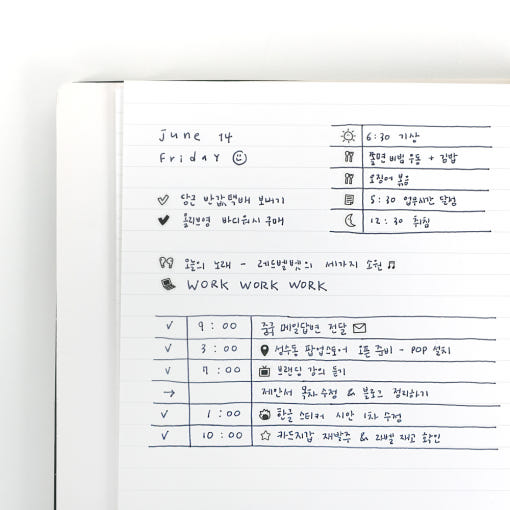 June 14
Friday
6:30 기상
쫄면 비빔우동 + 김밥
오징어 볶음
5:30 업무시간 달성
12:30 취침
당근 반값택배 보내기
올리브영 바디워시 구매
오늘의 노래 - 레드벨벳의 세가지 소원
WORK WORK WORK
9:00 중국 메일답변 전달
3:00 성수동 팝업스토어 오픈 준비 - POP 설치
7:00 브랜딩 강의 듣기
제안서 목차 수정 & 블로그 정리하기
1:00 한글 스티커 시안 1차 수정
10:00 카드지갑 재발주 & 라벨 재고 확인